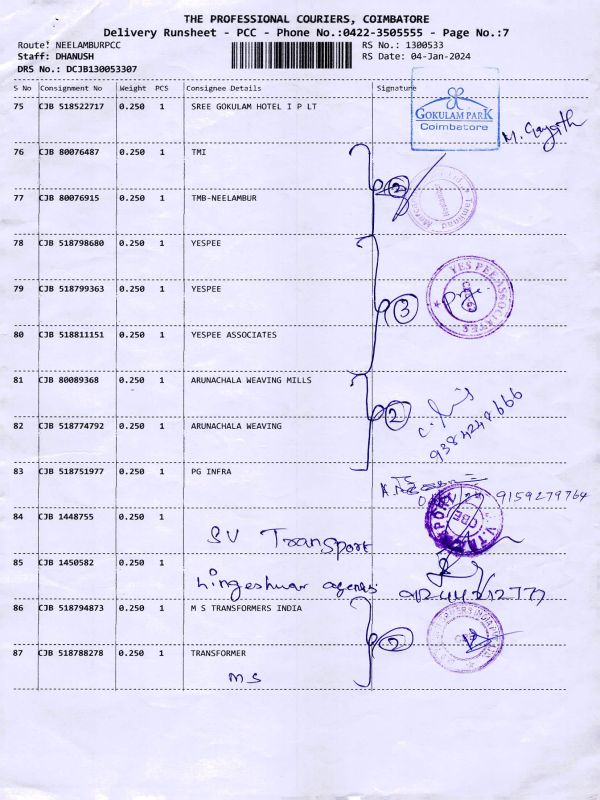 THE PROFESSIONAL COURIERS, COIMBATORE
Delivery Runsheet - PCC - Phone No.:0422-3505555 - Page No.:7
Route: NEELAMBURPCC RS No.: 1300533
Staff: DHANUSH RS Date: 04-Jan-2024
DRS No.: DCJB130053307
S No Consignment No Weight PCS Consignee Details Signature
75 CJB 518522717 0.250 1 SREE GOKULAM HOTEL I P LT
GOKULAM PARK
Coimbatore
76 CJB 80076487 0.250 1 TMI
2
77 CJB 80076915 0.250 1 TMB-NEELAMBUR
78 CJB 518798680 0.250 1 YESPEE
79 CJB 518799363 0.250 1 YESPEE
YES PEE ASSOCIATES
3
80 CJB 518811151 0.250 1 YESPEE ASSOCIATES
81 CJB 80089368 0.250 1 ARUNACHALA WEAVING MILLS
2
9384248666
82 CJB 518774792 0.250 1 ARUNACHALA WEAVING
83 CJB 518751977 0.250 1 PG INFRA
9159279764
84 CJB 1448755 0.250 1
SV Transport
CBE
85 CJB 1450582 0.250 1
Lingeshwar agencies
86 CJB 518794873 0.250 1 M S TRANSFORMERS INDIA
2
87 CJB 518788278 0.250 1 TRANSFORMER
MS